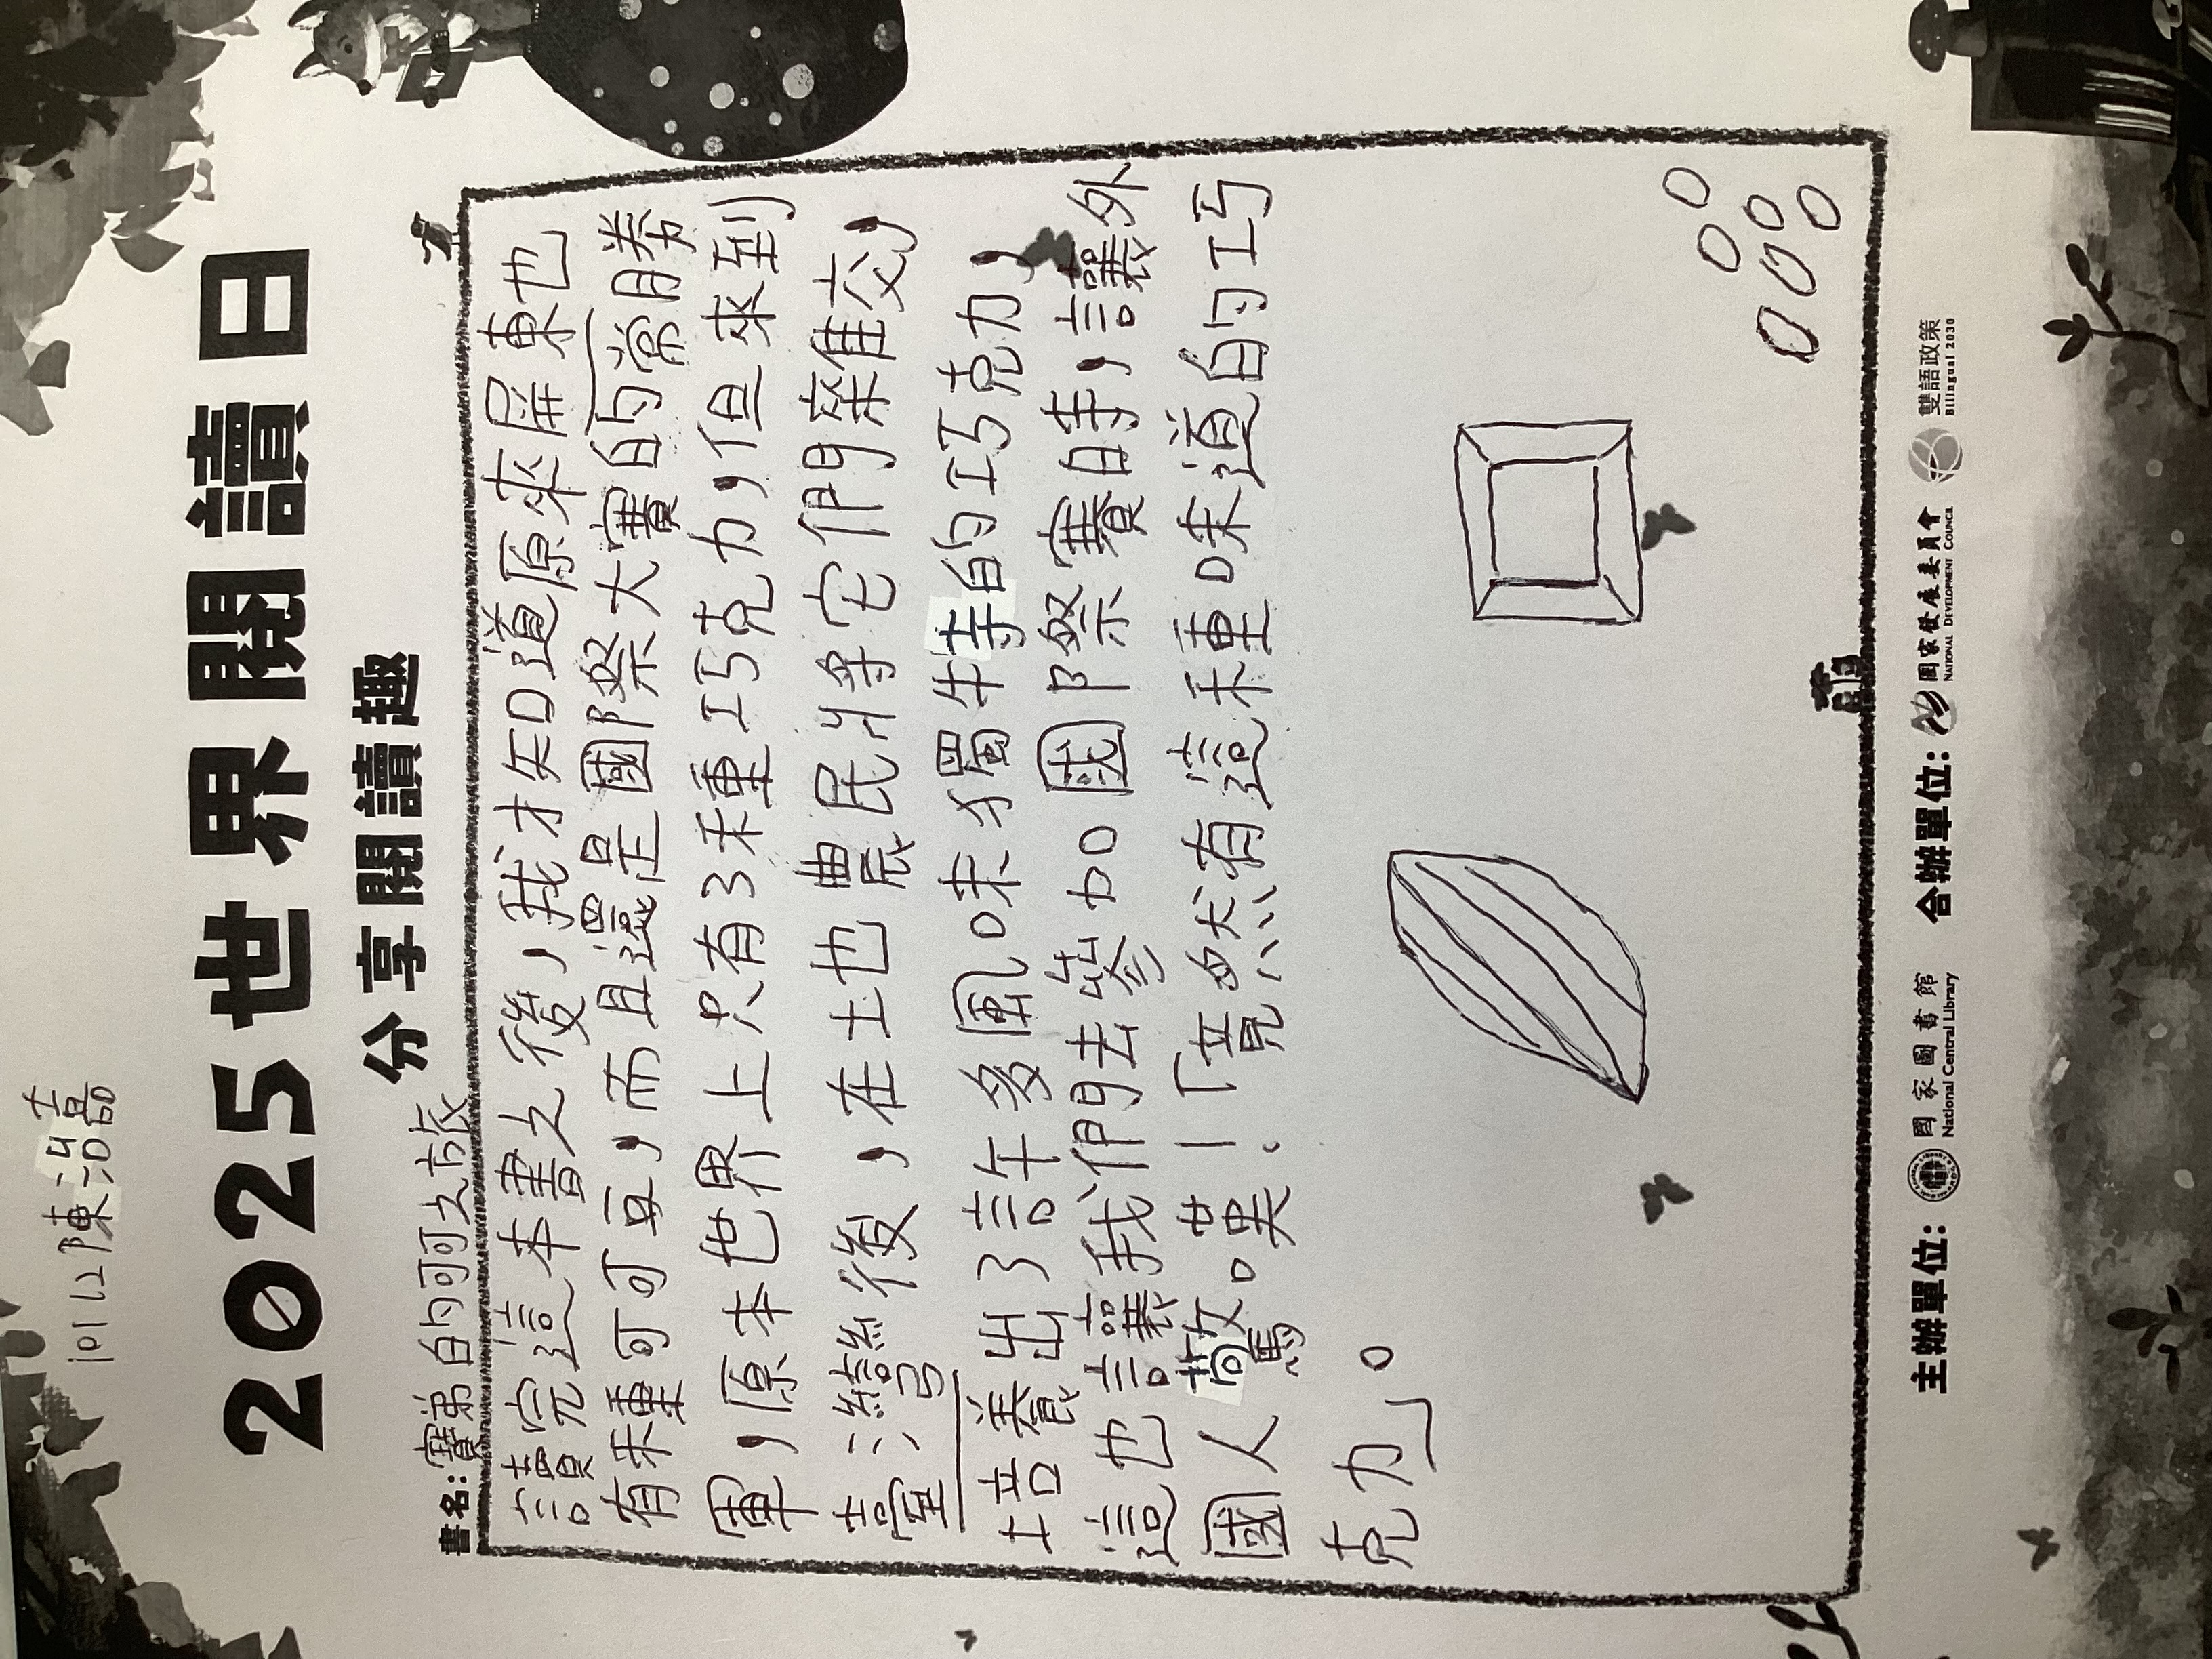 10112陳治嘉
2025世界閱讀日
分享閱讀趣
書名:寶弟的可可之旅
讀完這本書之後,我才知道原來屏東也
有種可可豆,而且還是國際大賽的常勝
軍,原本世界上只有3種巧克力,但來到
臺灣後,在土也農民將它們雜交,
培養出了許多風味獨特的巧克力,
這也讓我們去參加國際賽時,讓外
國人驚嘆:「竟然有這種味道的巧
克力」。
主辦單位:
國家圖書館
National Central Library
合辦單位:
國家發展委員會
NATIONAL DEVELOPMENT COUNCIL
雙語政策
Bilingual 2030